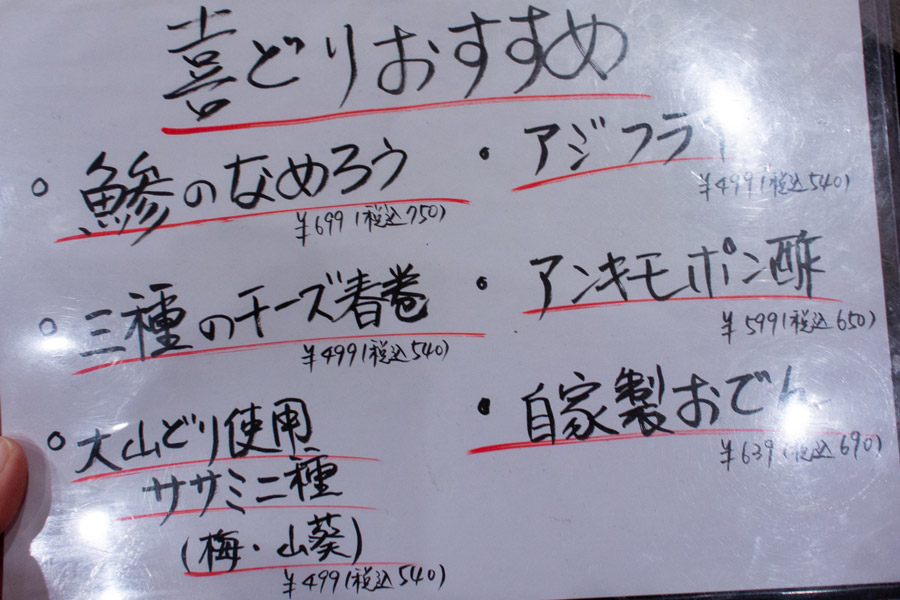 喜どりおすすめ
○ 鯵のなめろう
¥699(税込750)
○ 三種のチーズ春巻
¥499(税込540)
○ 大山どり使用
ササミ二種
(梅・山葵)
¥499(税込540)
• アジフラ
¥499(税込540)
• アンキモポン酢
¥599(税込650)
• 自家製おでん
¥639(税込690)